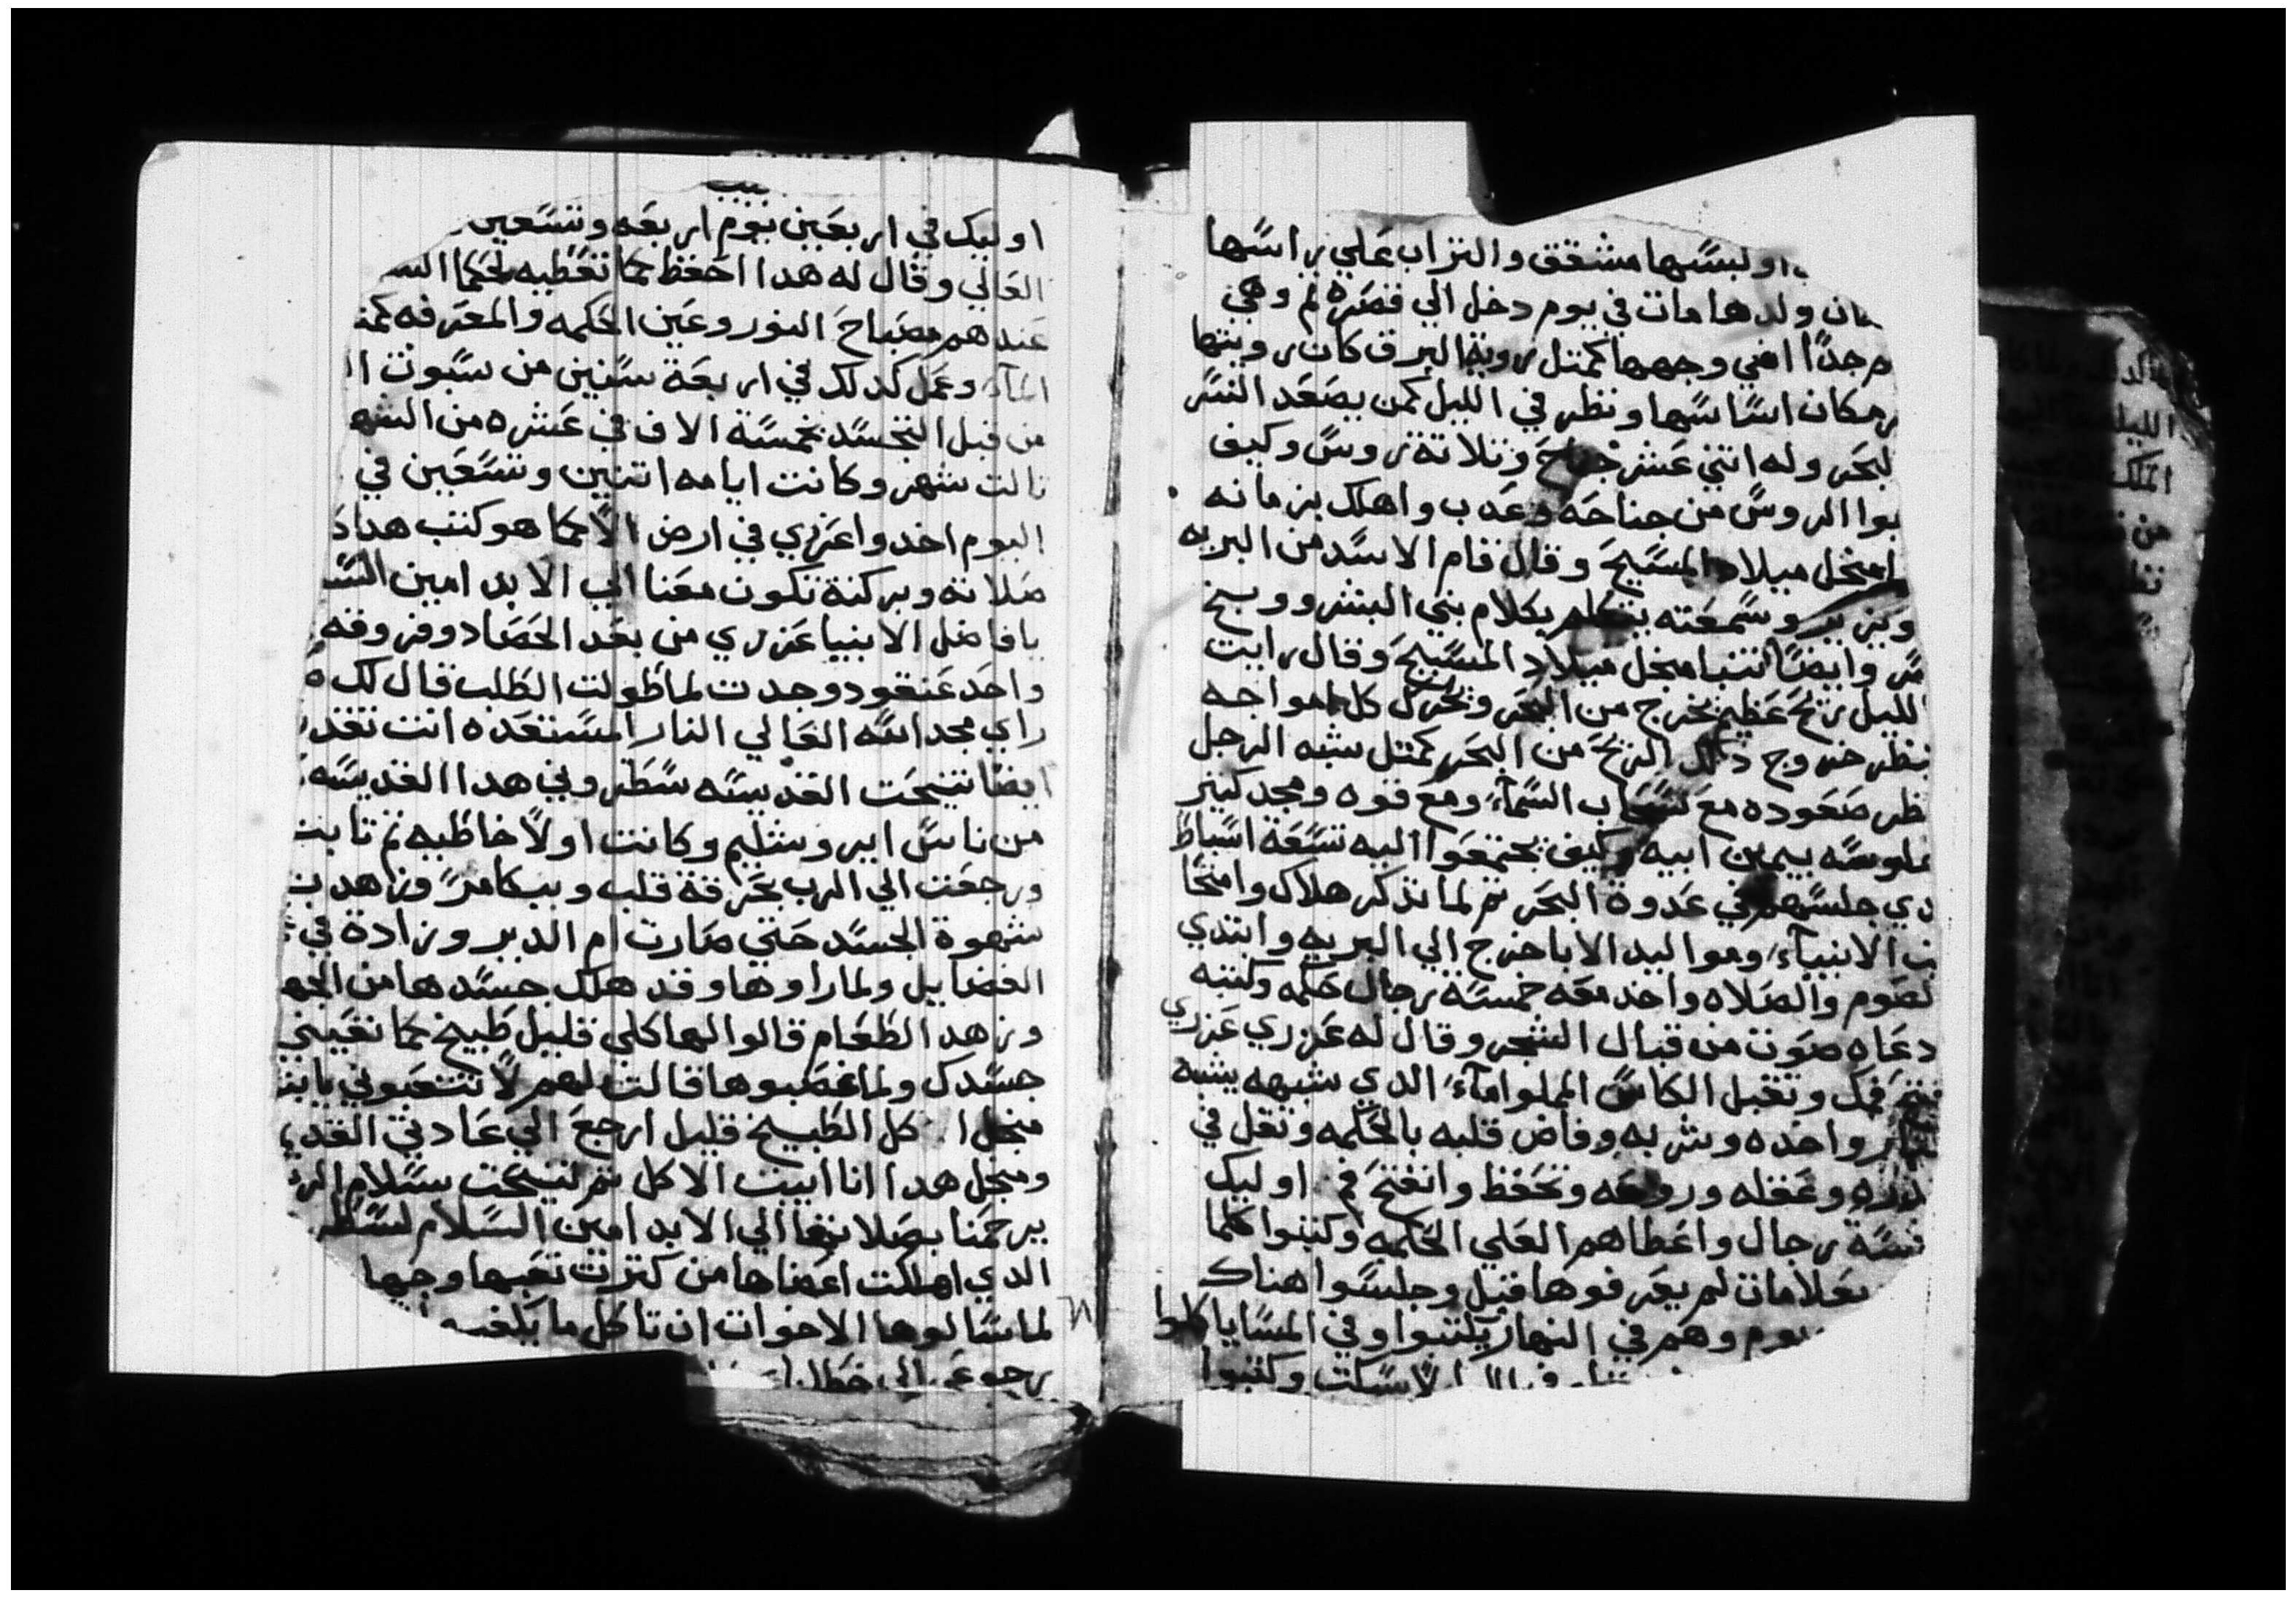 اولبسها مشقق والتراب علي راسها
ان ولدها مات في يوم دخل الي قصره ثم وهي
جدًا اضي وجهها كمتل روية البرق كان رويتها
مكان اساسها ونظر في الليل كمن يصعد النسر
لبحر وله اتني عشر جناح وتلاتة روس وكيف
الروس من جناحه وعَدب واهلك بزمانه
امنجل ميلاد المسيح وقال قام الاسد من البريه
ويزير وسمعته يتكلم بكلام بني البشر ووبخ
وايضًا تنبا منجل ميلاد المسيح وقال رايت
لليل ريح عظيم يخرج من البحر وتحرك كل امواجه
ينظر خروج دلك الريح من البحر كمتل شبه الرجل
نظر صعوده مع سحاب السمآء ومع قوه ومجد كبير
بيمين ابيه وكيف يجتمعوا اليه تسعة اسباط
دي جلسهم في عدوة البحر تم لما تدكر هلاك وامتحا
الانبيآء ومواليد الابا خرج الي البريه وابتدي
لصوم والصلاه واخد معه خمسة رجال حكمه وكتبه
دعاه صوت من قبال الشجر وقال له عزري عزري
فمك وتقبل الكاس المملوا مآء الدي شبهه يشبه
واخده وشربه وفاض قلبه بالحكمه وتقل في
وعقله وروحه وتحفظ وانفتح فم اوليك
رجال واعطاهم العلي الحكمه وكتبوا كلما
بعلامات لم يعرفوها قبل وجلسوا هناك
يوم وهم في النهار يكتبوا وفي المسا ياكلوا
لا سكت وكتبوا
اوليك في اربعين يوم اربعه وتسعين
العالي وقال له هدا احفظ مما تعطيه لحكما
عندهم مصباح النور وعين الحكمه والمعرفه
وعمل كدلك في اربعة سنين من سبوت
من قبل التجسد بخمسة الاف في عشره من الشهر
تالت شهر وكانت ايامه اتنين وتسعين في
اليوم اخدوا عزري في ارض الاحيا هو كتب هدا
صلاته وبركته تكون معنا الي الابد امين
يا فاضل الانبيا عزري من بعد الحصاد وفروقه
واحد عنقود وجدت لما طولت الطلب قال لك
راي مجد الله العالي النار المستقده انت تقد
ايضًا تنيحت القديسه سطر وهي هدا القديسه
من ناس ايروشليم وكانت اولًا خاطيه تم تابت
ورجعت الي الرب بحرقة قلب وببكا مر وزاهدت
شهوة الجسد حتي صارت ام الدير وزادة في
الفضايل ولما راوها وقد هلك جسدها من الجهد
وزهد الطعام قالوا لها كلي قليل طبيخ مما تغيتي
جسدك ولما غصبوها قالت لهم لا تتعبوني
منجل اكل الطبيخ قليل ارجع الي عادتي القديم
ومنجل هدا انا ابيت الاكل تم تنيحت بسلام الرب
يرحمنا بصلاتها الي الابد امين السلام لسطر
الدي اهلكت اعضاها من كترت تعبها وجها
لما سالوها الاخوات ان تاكل ما يكفيه
رجوعي الي خطا